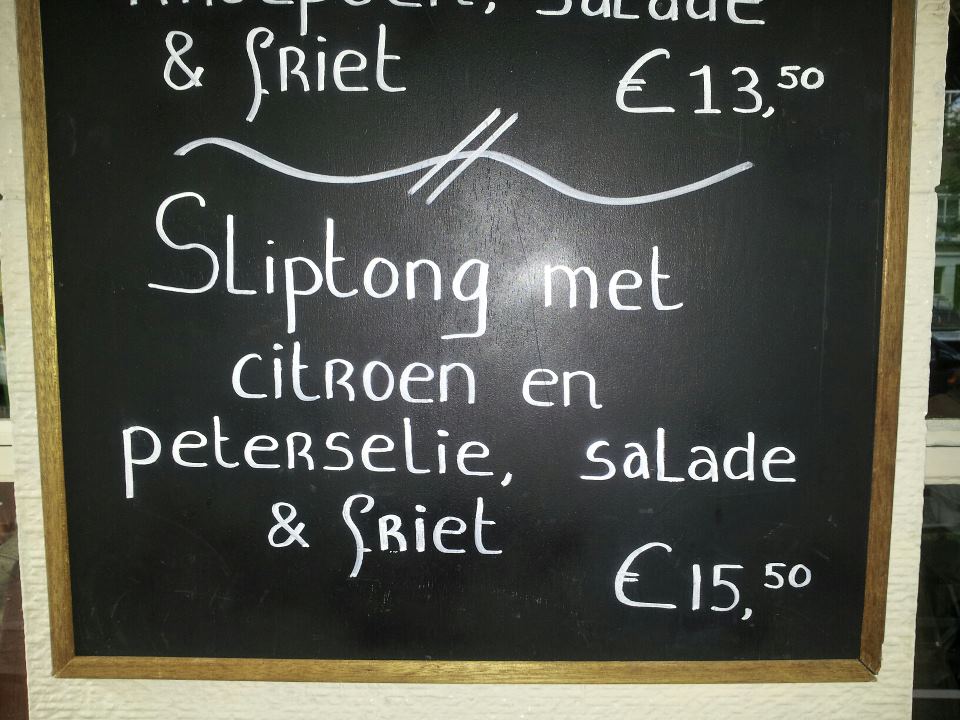 salade
& friet
€ 13,50
Sliptong met
citroen en
peterselie, salade
& friet
€ 15,50